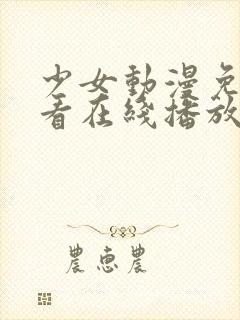 少女動漫免
看在綫播放
農惠農